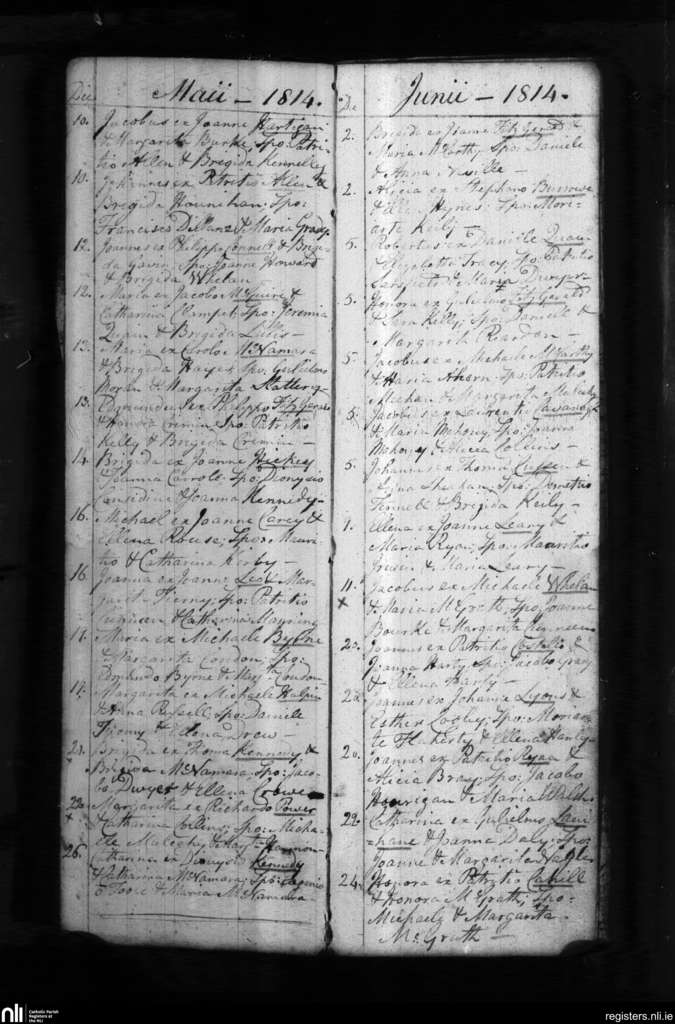 Die Maii - 1814.
10. Jacobus ex Joanne Hartigan
& Margarita Burke, Spo: Patri-
tio Allen & Brigida Kennelly
10. Johannes ex Patritio Allen &
Brigida Hounehan: Spo:
Francisco & Maria Grady
12. Joannes ex Philippo Connell & Brigi-
da Gavin, Spo: Joanne Howard
& Brigida Whelan
12. Maria ex Jacobo McGuire &
Catharina Spo: Jeremia
Quin & Brigida Lillis -
13. Maria ex Carolo McNamara
& Brigida Hayes Spo: Gulielmo
Moran & Margarita Slattery -
13. Edmundus ex Philippo Fitz Gerald
& Honora Cremin, Spo: Patritio
Kelly & Brigida Cremin -
14. Brigida ex Joanne Hickey
& Joanna Carroll: Spo: Dionysio
Considine & Joanna Kennedy -
16. Michael ex Joanne Carey &
Ellena Spo: Mauri-
tio & Catharina Kirby -
16. Joanna ex Joanne & Mar-
garit Tierny; Spo: Patritio
& Catharina
17. Maria ex Michaele Byrne
& Margarita Condon; Spo:
Edmundo Byrne & Mary Condon
19. Margarita ex Michaele Halpin
& Anna Russell, Spo: Daniele
& Ellena Drew -
21. Brigida ex Thoma Kennedy &
Brigida McNamara, Spo: Jaco-
bo Dwyer & Ellena Crowe
22. Margarita ex Richardo Power
x & Catharina Collins; Spo: Micha-
ele & Hannon
26. Catharina ex Dionysio Kennedy
& Catharina McNamara; Spo:
& Maria McNamara -
Die Junii - 1814.
2. Brigida ex Joanne Fitz Gerald &
Maria McCarthy Spo: Daniele
& Anna Neville -
2. Alicia ex Stephano Burrowe
& Ellen Hynes: Spo: Mori-
arte Keily -
5. Robertus ex Daniele
& Elizabetha Tracy, Spo: Patritio
Sarsfield & Maria
5. Honora ex Gulielmo Fitz Gerald
& Sara Kelly; Spo: Daniele &
Margarita Reardon -
5. Jacobus ex Michaele McCarthy
& Maria Ahern, Spo: Patritio
Meehan & Margarita
5. Jacobus ex Laurentio Cavanagh
& Maria Mahony Spo: Joanne
Mahony & Alicia Collins -
5. Johannes ex Thoma Cussen &
Sheehan, Spo: Demetrio
Fennell & Brigida Keily -
7. Ellena ex Joanne Leary &
Maria Ryan; Spo: Mauritio
& Maria Leary -
11. Jacobus ex Michaele Whelan
x & Maria McGrath; Spo: Joanne
Bourke & Margarita
20. Joannes ex Patritio Costello &
Joanna Harty, Spo: Jacobo Grady
& Ellena Harty -
20. Joannes ex Johanne Lyons &
Esther Spo: Moriar-
te Flaherty & Ellena Hanley -
20. Joannes ex Patritio Ryan &
Alicia Bray, Spo: Jacobo
Hourigan & Maria Walsh
22. Catharina ex Gulielmo Lani-
-hane & Joanna Daly: Spo:
Joanne & Margarita Nagle
24. Honora ex Patritio Cahill
& Honora McGrath; Spo:
Michaele & Margarita
McGrath -
nli Catholic Parish
Registers at
the NLI
registers.nli.ie